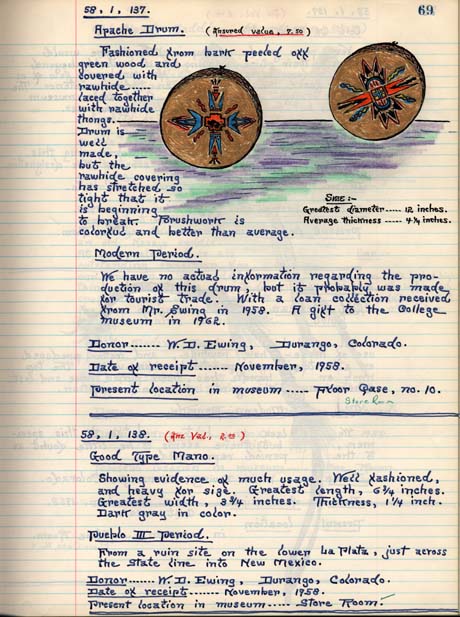 58, 1, 137.
69
Apache Drum. (Insured value, 7.50)
Fashioned from bark peeled off
green wood and
covered with
rawhide .....
laced together
with rawhide
thongs.
Drum is
well
made,
but the
rawhide covering
has stretched so
tight that it
is beginning
to break. Brushwork is
colorful and better than average.
Size :-
Greatest diameter ----- 12 inches.
Average thickness ----- 4 1/4 inches.
Modern Period.
We have no actual information regarding the pro-
duction of this drum, but it probably was made
for tourist trade. With a loan collection received
from Mr. Ewing in 1958. A gift to the College
museum in 1962.
Donor ------- W. D. Ewing, Durango, Colorado.
Date of receipt ------- November, 1958.
Present location in museum ----- Floor Case, no. 10.
Store Room
58, 1, 138. (Ins Val., 2.00)
Good Type Mano.
Showing evidence of much usage. Well fashioned,
and heavy for size. Greatest length, 6 1/4 inches.
Greatest width, 3 3/4 inches. Thickness, 1 1/4 inch.
Dark gray in color.
Pueblo III Period.
From a ruin site on the lower La Plata, just across
the State line into New Mexico.
Donor ------- W. D. Ewing, Durango, Colorado.
Date of receipt ------- November, 1958.
Present location in museum ----- Store Room.